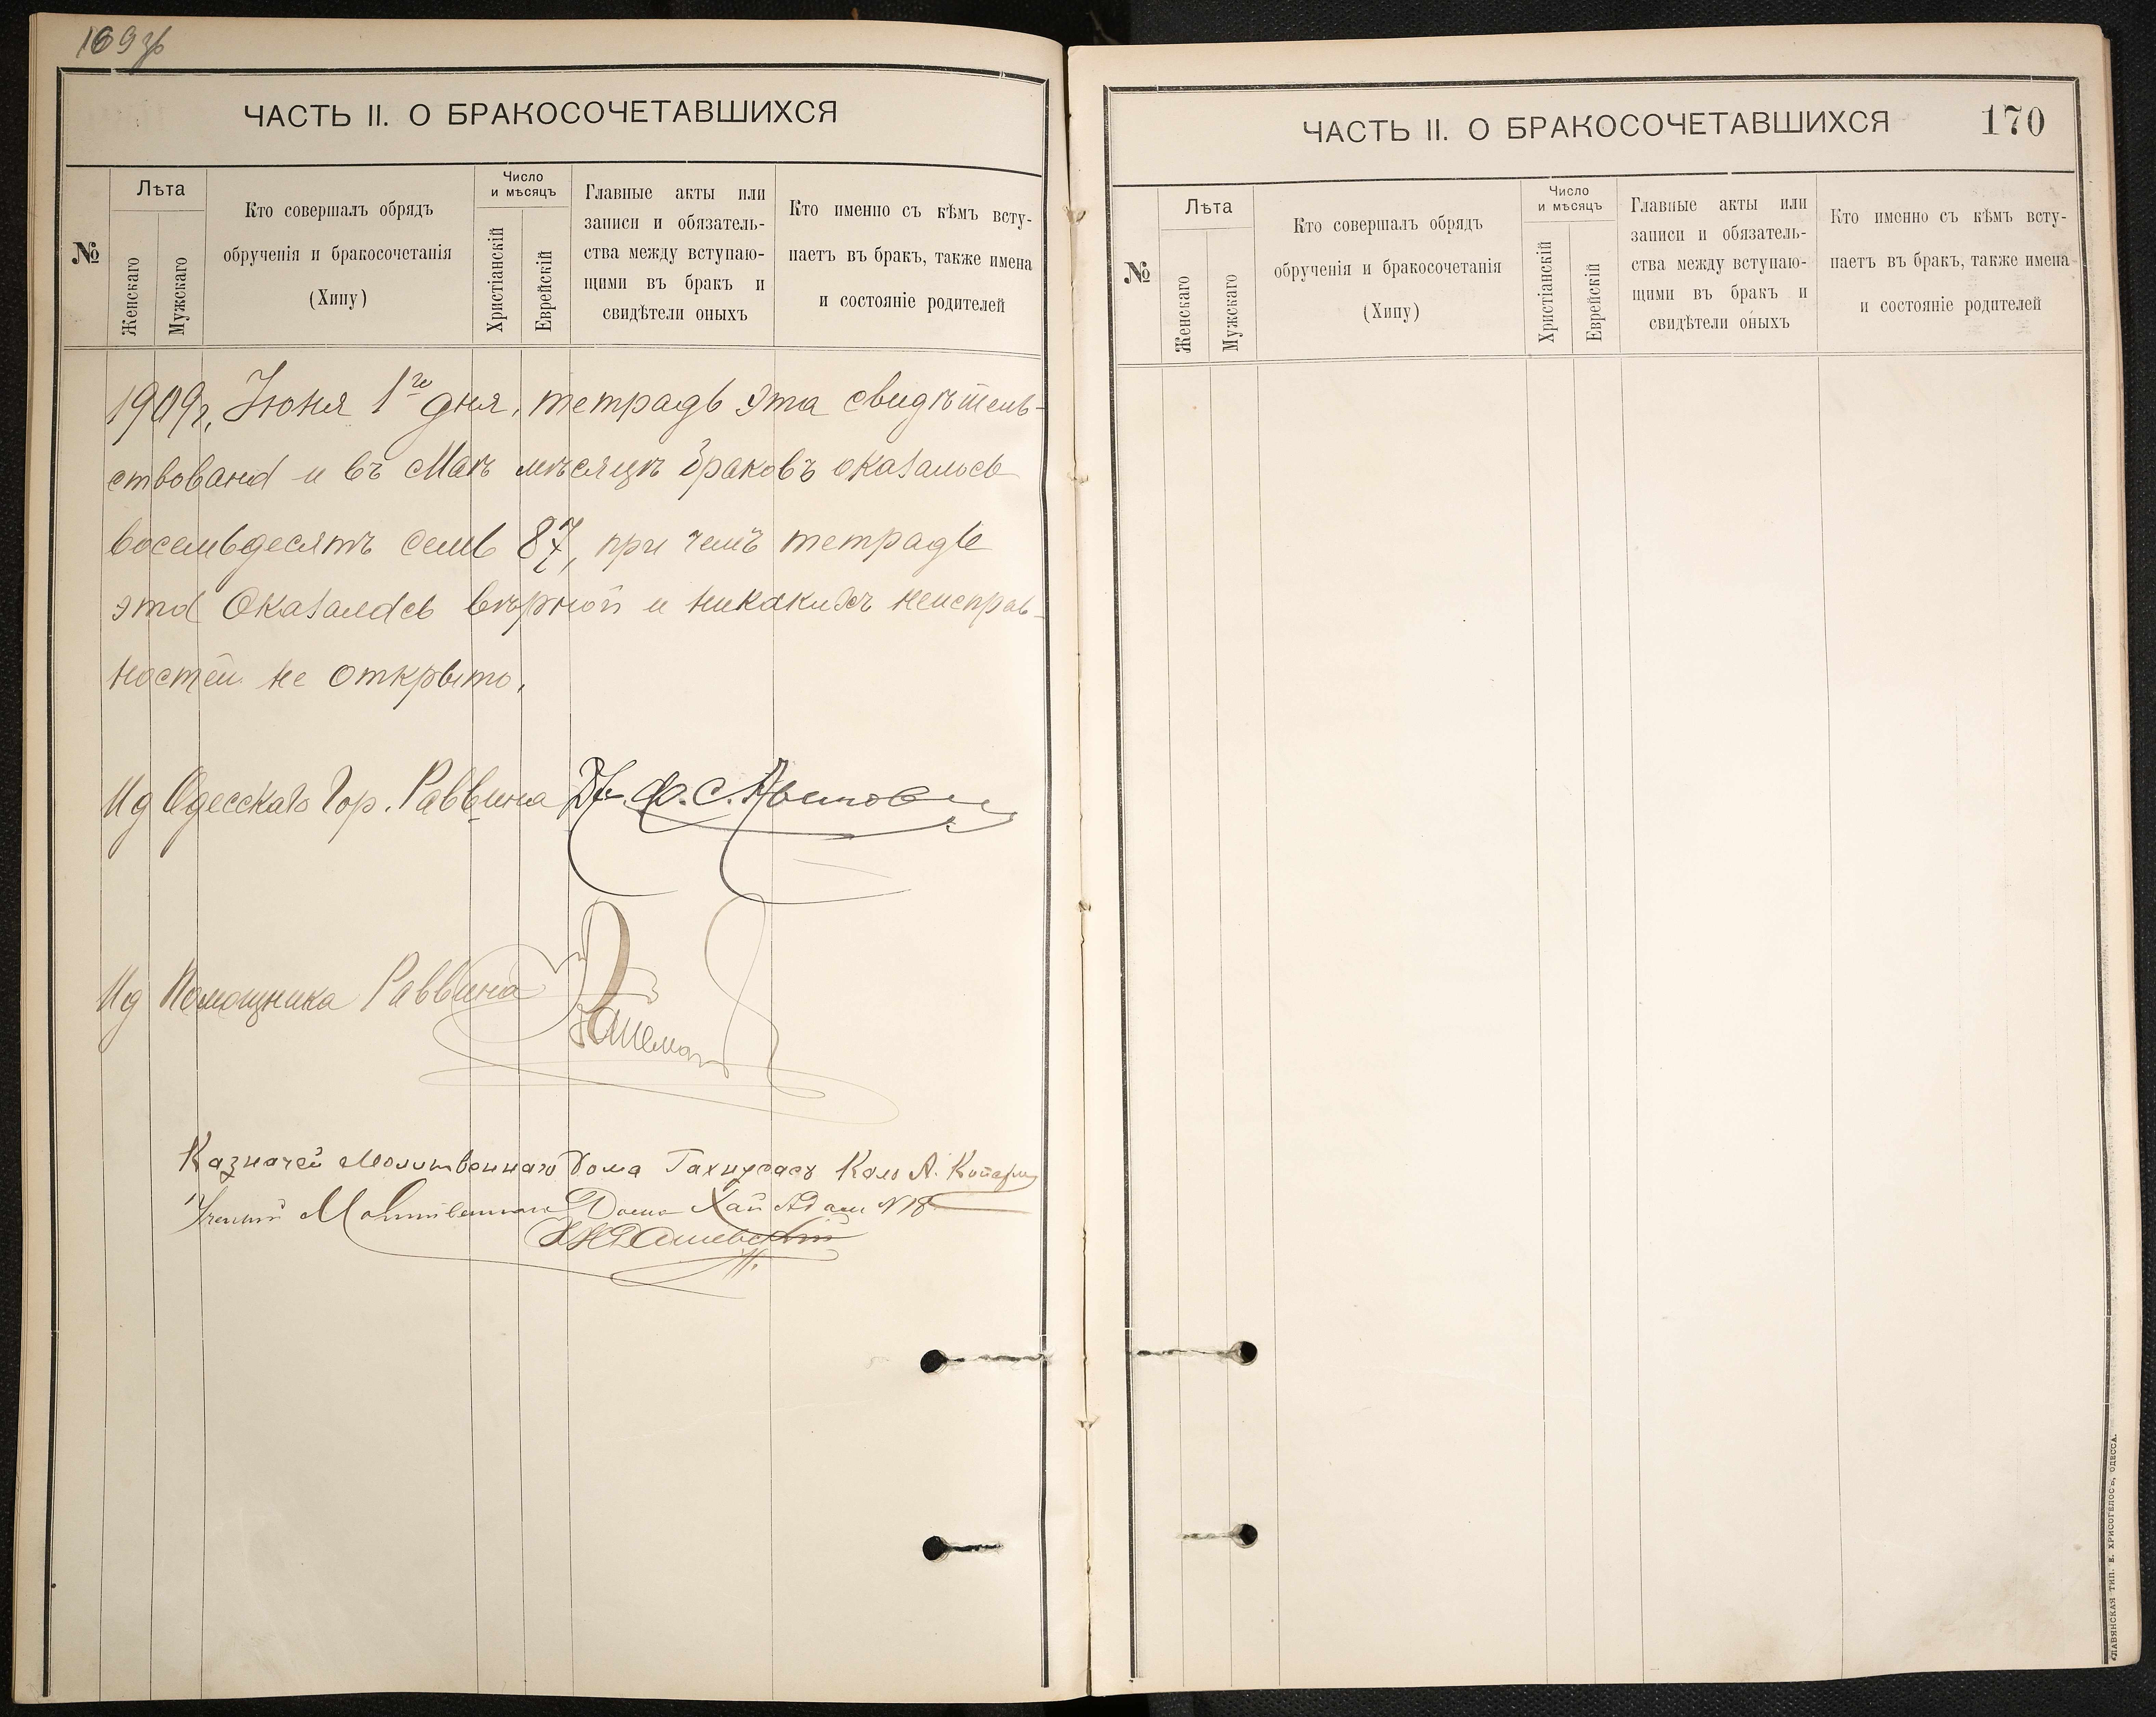 169 об
ЧАСТЬ II. О БРАКОСОЧЕТАВШИХСЯ
№
Лѣта
Женскаго
Мужскаго
Кто совершалъ обрядъ
обрученія и бракосочетанія
(Хипу)
Число
и мѣсяцъ
Христіанскій
Еврейскій
Главные акты или
записи и обязатель-
ства между вступаю-
щими въ бракъ и
свидѣтели оныхъ
Кто именно съ кѣмъ всту-
паетъ въ бракъ, также имена
и состояніе родителей
1909 г. Іюня 1го дня, тетрадь эта свидѣтель-
ствована и въ Маѣ мѣсяцѣ браковъ оказалось
восемьдесятъ семь 87, при чемъ тетрадь
эта оказалась вѣрной и никакихъ неисправ-
ностей не открыто.
Ид Одесскаго Гор. Раввина
Ид Помощника Раввина
Казначей Молитвеннаго Дома Коло А.
Молитвеннаго Дома Хаи Адам №18
ЧАСТЬ II. О БРАКОСОЧЕТАВШИХСЯ
170
№
Лѣта
Женскаго
Мужскаго
Кто совершалъ обрядъ
обрученія и бракосочетанія
(Хипу)
Число
и мѣсяцъ
Христіанскій
Еврейскій
Главные акты или
записи и обязатель-
ства между вступаю-
щими въ бракъ и
свидѣтели оныхъ
Кто именно съ кѣмъ всту-
паетъ въ бракъ, также имена
и состояніе родителей
СЛАВЯНСКАЯ ТИП. Е. ХРИСОГЕЛОСЪ, ОДЕССА.